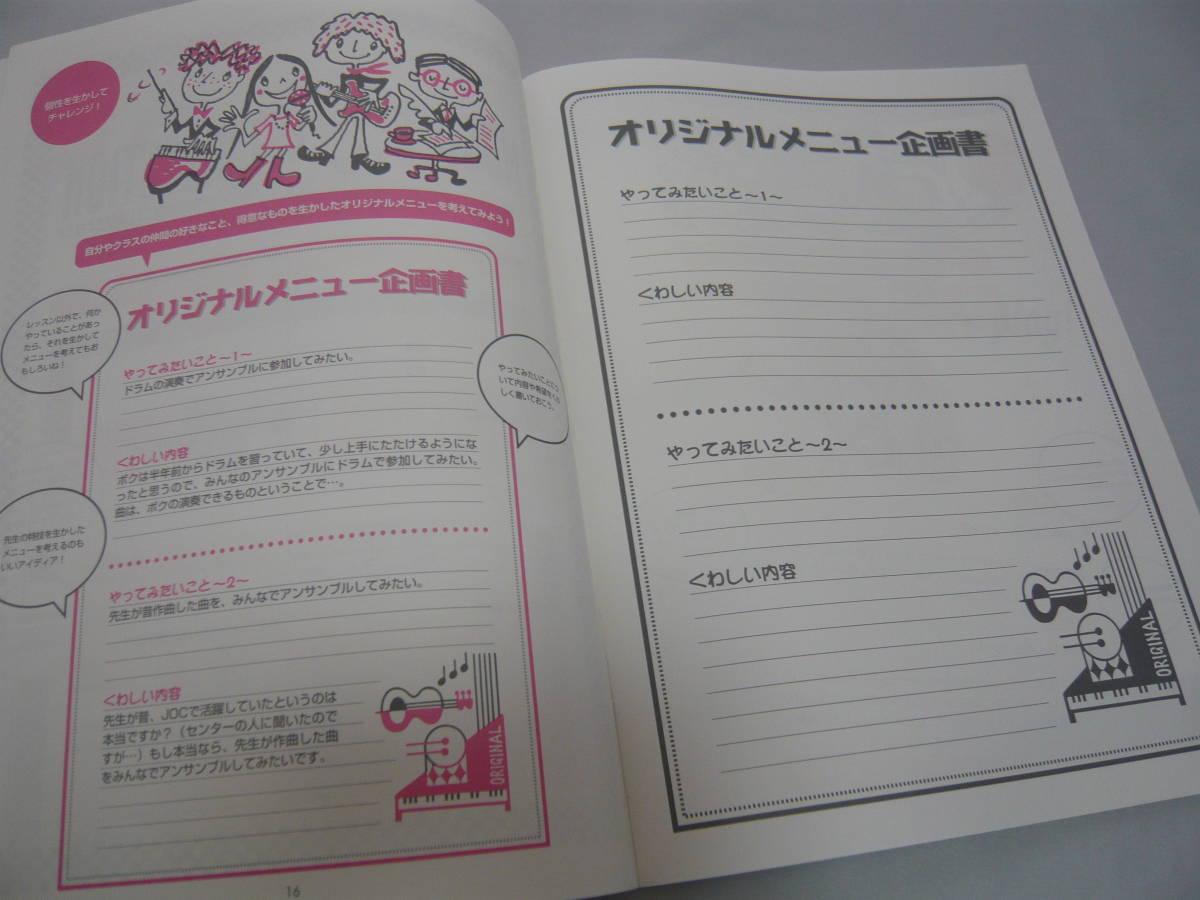 個性を生かして
チャレンジ！
自分やクラスの仲間の好きなこと、得意なものを生かしたオリジナルメニューを考えてみよう！
オリジナルメニュー企画書
レッスン以外で、何か
やっていることがあっ
たら、それを生かして
メニューを考えてもお
もしろいね！
やってみたいこと～1～
ドラムの演奏でアンサンブルに参加してみたい。
やってみたいことにつ
いて内容や希望をくわ
しく書いておこう。
くわしい内容
ボクは半年前からドラムを習っていて、少し上手にたたけるようにな
ったと思うので、みんなのアンサンブルにドラムで参加してみたい。
曲は、ボクの演奏できるものということで…。
先生の特技を生かした
メニューを考えるのも
いいアイディア！
やってみたいこと～2～
先生が昔作曲した曲を、みんなでアンサンブルしてみたい。
くわしい内容
先生が昔、JOCで活躍していたというのは
本当ですか？（センターの人に聞いたので
すが…）もし本当なら、先生が作曲した曲
をみんなでアンサンブルしてみたいです。
ORIGINAL
16
オリジナルメニュー企画書
やってみたいこと～1～
くわしい内容
やってみたいこと～2～
くわしい内容
ORIGINAL